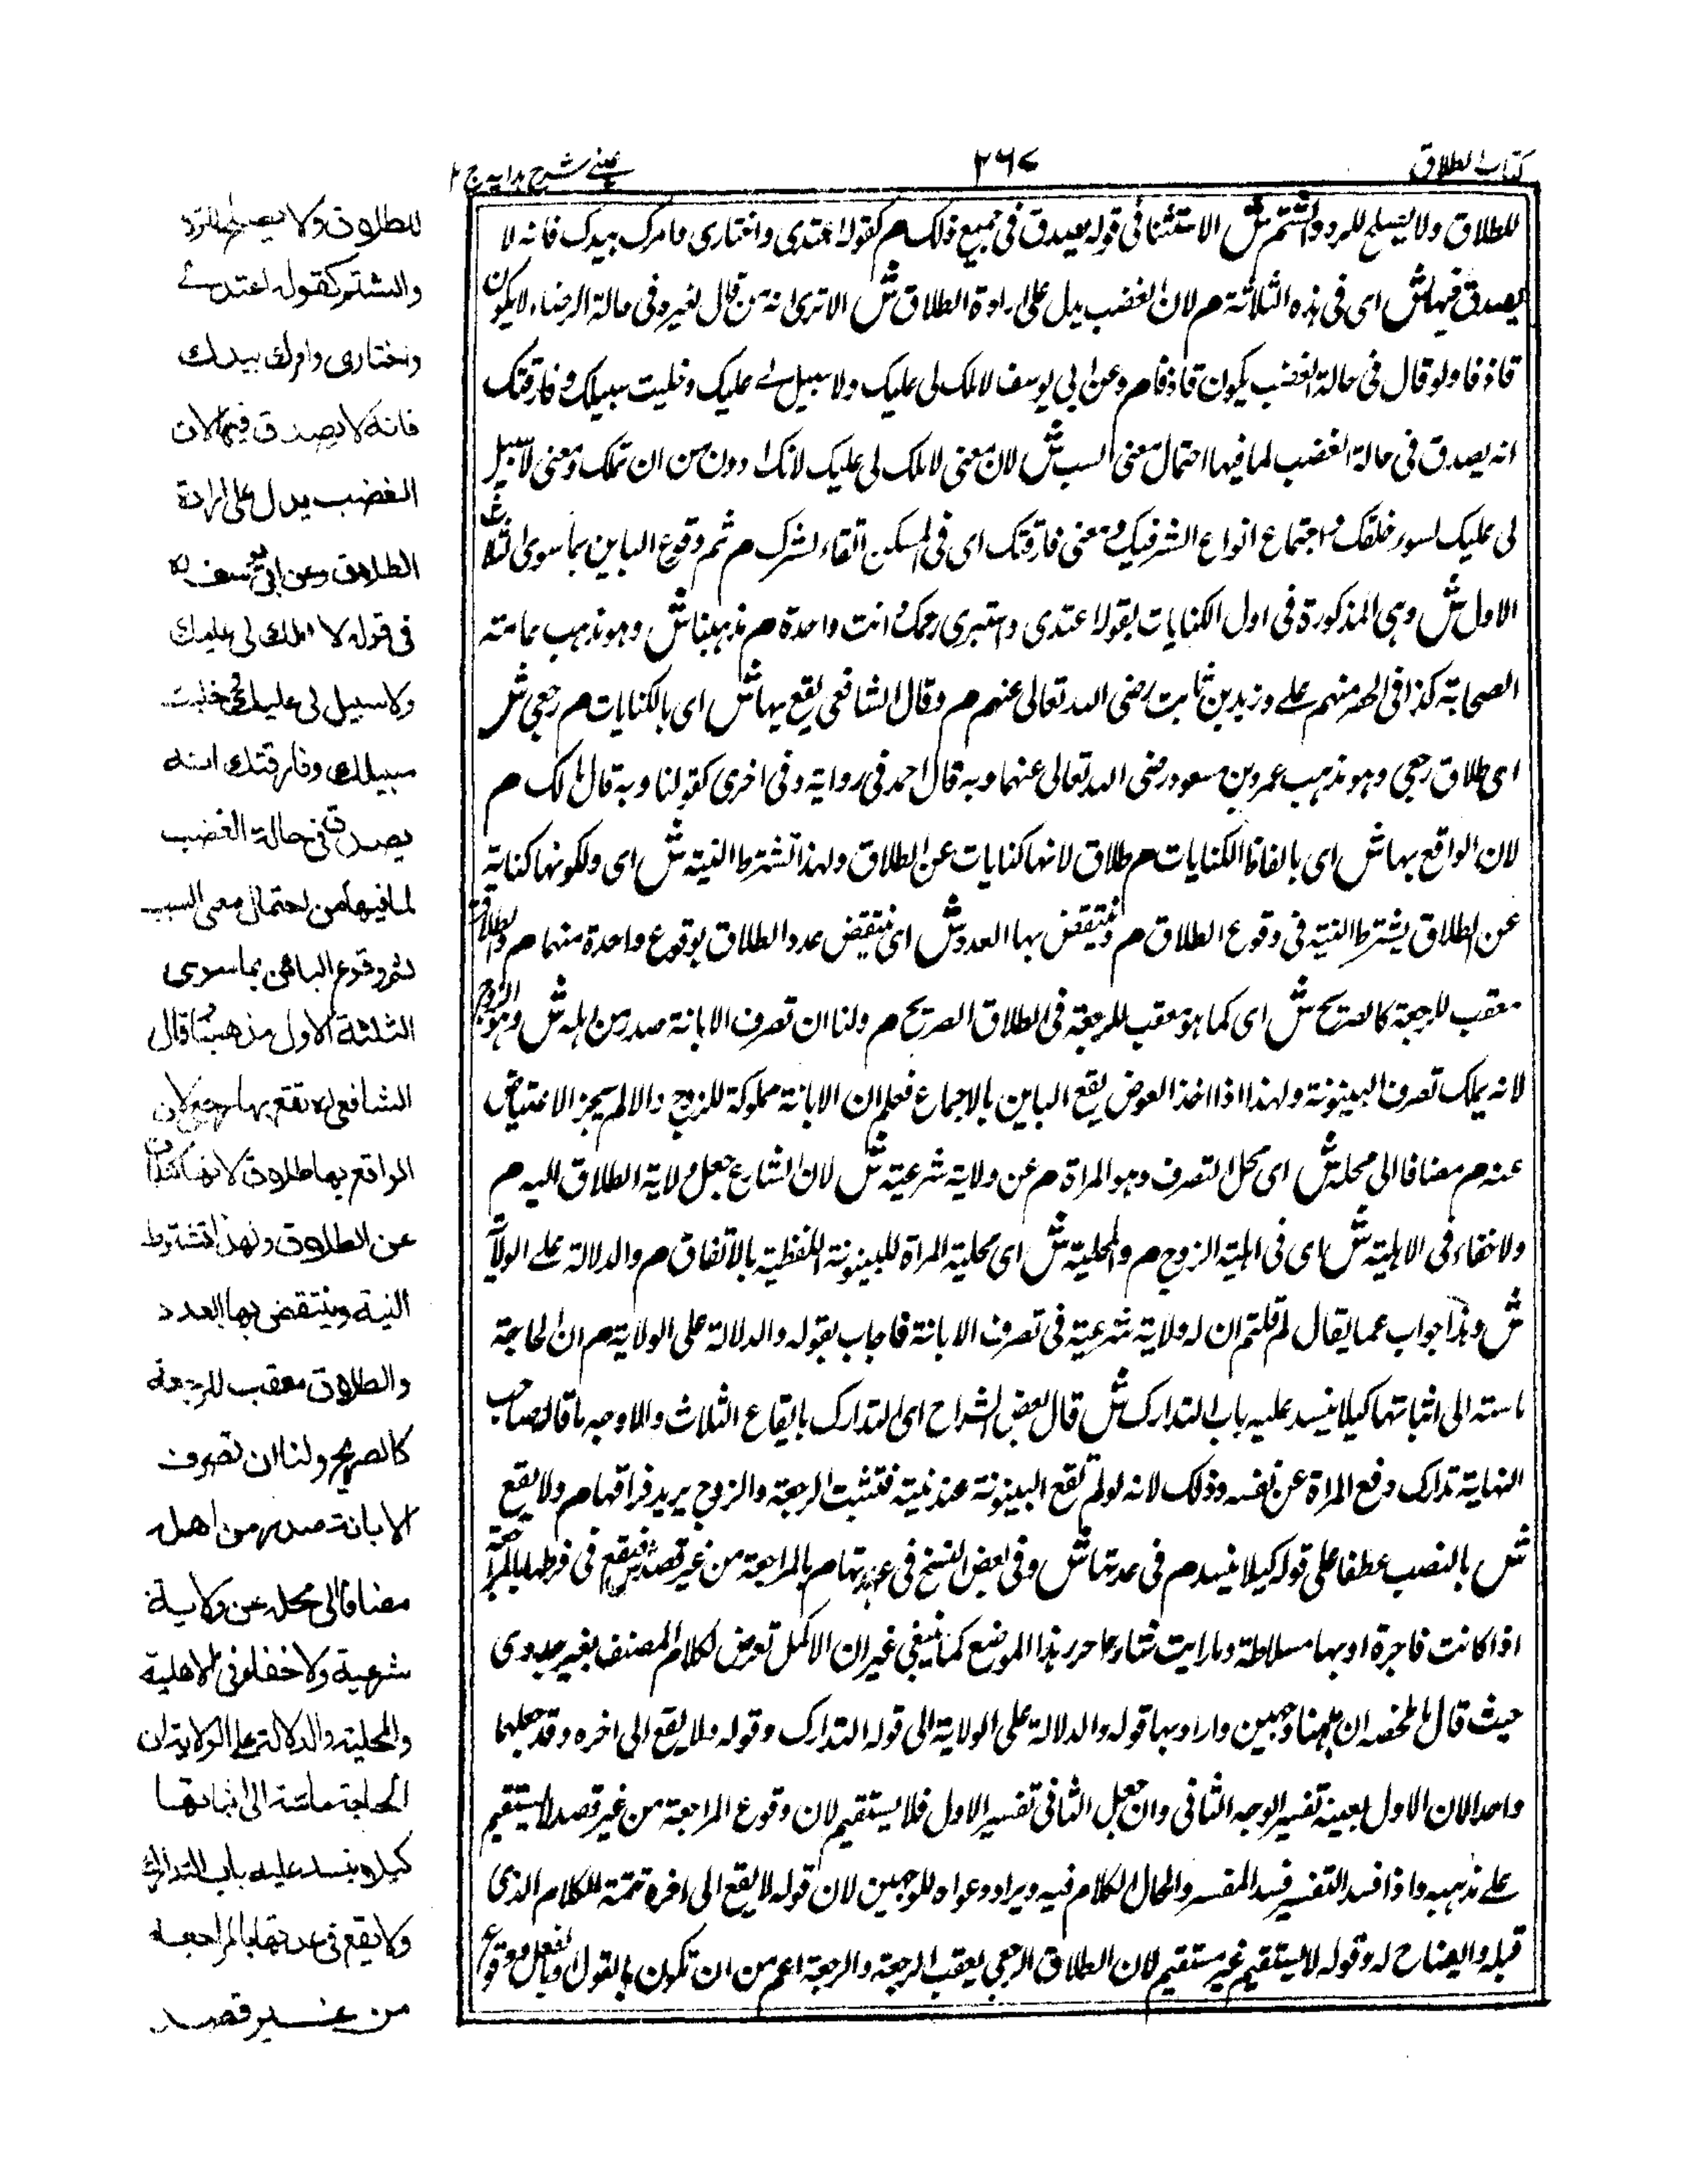 كتاب الطلاق
٢٦٧
عينى شرح هدايه ج ٢
للطلاق ولا يصلح للرد والشتم ش الاستثنا فى قوله يصدق فى جميع ذلك م كقوله اعتدى واختارى وامرك بيدك فانه لا
يصدق فيها ش اى فى هذه الثلاثة م لان الغضب يدل على ارادة الطلاق ش الا ترى انه من قال لغيره فى حالة الرضاء لا يكون
قاذفا ولو قال فى حالة الغضب يكون قاذفا م وعن ابى يوسف لا ملك لى عليك ولا سبيل لے عليك وخليت سبيلك وفارقتك
انه يصدق فى حالة الغضب لما فيها احتمال معنى السب ش لان معنى لا ملك لى عليك لانك ادون من ان تملك ومعنى لا سبيل
لى عليك لسوء خلقك و اجتماع انواع الشر فيك ومعنى فارقتك اى فى المسكن اتقاء لشرك م ثم وقوع الباين بما سوى الثلاث
الاول ش وهى المذكورة فى اول الكنايات بقوله اعتدى واستبرى رحمك وانت واحدة م مذهبنا ش وهو مذهب عامته
الصحابة كذا فى منهم على وزيد بن ثابت رضى الله تعالى عنهم م وقال الشافعى يقع بها ش اى بالكنايات م رجعى ش
اى طلاق رجعى وهو مذهب عمر وبن مسعود رضى الله تعالى عنهما وبه قال احمد فى رواية وفى اخرى كقولنا وبه قال مالك م
لان الواقع بها ش اى بالفاظ الكنايات م طلاق لانها كنايات عن الطلاق ولهذا تشترط النية ش اى ولكونها كناية
عن الطلاق يشترط النية فى وقوع الطلاق م وينتقض بها العدد ش اى ينتقض عدد الطلاق بوقوع واحدة منهما م والطلاق
معقب للرجعة كالصريح ش اى كما هو معقب للرجعة فى الطلاق الصريح م ولنا ان تصرف الابانة صدر من اهله ش وهو الزوج
لانه يملك تصرف البينونة ولهذا اذا اخذ العوض يقع الباين بالاجماع فعلم ان الابانة مملوكة للزوج والا لم يجز الاعتياض
عنه م مضافا الى محله ش اى محل التصرف وهو المراة م عن ولاية شرعية ش لان الشارع جعل ولاية الطلاق اليه م
ولا خفاء فى الاهلية ش اى فى اهلية الزوج م والمحلية ش اى محلية المراة للبينونة اللفظية بالاتفاق م والدلالة على الولاية
ش وهذا جواب عما يقال لم قلتم ان له ولاية شرعية فى تصرف الابانة فاجاب بقوله والدلالة على الولاية م ان الحاجة
ماسته الى اثباتها كيلا ينسد عليه باب التدارك ش قال بعض الشراح اى التدارك بايقاع الثلاث والاوجه ما قال صاحب
النهاية تدارك دفع المراة عن نفسه وذلك لانه لو لم تقع البينونة عند نيته فتثبت الرجعة والزوج يريد فراقها م ولا يقع
ش بالنصب عطفا على قوله كيلا ينسد م فى عدتها ش وفى بعض النسخ فى عهدتها م بالمراجعة من غير قصد ش فيقع فى بالمراجعة
اذا كانت فاجرة او بها سلاطة وما رايت شارحا حرر هذا الموضع كما ينبغى غير ان الاكمل تعرض لكلام المصنف بغير جدوى
حيث قال ما ملخصه ان ههنا وجهين واراد بها قوله والدلالة على الولاية الى قوله التدارك وقوله ولا يقع الى اخره وقد جعلهما
واحدا لان الاول بعينه تفسير الوجه الثانى وان جعل الثانى تفسير الاول فلا يستقيم لان وقوع المراجعة من غير قصد لا يستقيم
على مذهبه واذا فسد التفسير فسد المفسر والحال الكلام فيه ويراد دعواه للوجهين لان قوله لا يقع الى اخره تتمة للكلام الذى
قبله وايضاح له وقوله لا يستقيم غير مستقيم لان الطلاق الرجعى يعقب الرجعة والرجعة اعم من ان تكون بالقول او بالفعل ووقوع
للطلاق ولا يصلح للرد
والشتم كقوله اعتدے
واختارى وامرك بيدك
فانه لا يصدق فيها لان
الغضب يدل على ارادة
الطلاق وعن ابى يوسف ره
فى قوله لا ملك لى عليك
ولا سبيل لى عليك وخليت
سبيلك وفارقتك انه
يصدق فى حالة الغضب
لما فيها من احتمال معنى السب
ثم وقوع البائن بما سوى
الثلثة الاول مذهبنا وقال
الشافعى ره تقع بها رجعى لان
الواقع بها طلاق لانها كنايات
عن الطلاق ولهذا تشترط
النية وينتقض بها العدد
والطلاق معقب للرجعة
كالصريح ولنا ان تصرف
الابانة صدر من اهله
مضافا الى محله عن ولاية
شرعية ولا خفاء فى الاهلية
والمحلية والدلالة على الولاية ان
الحاجة ماسة الى اثباتها
كيلا ينسد عليه باب التدارك
ولا يقع فى عدتها بالمراجعة
من غير قصد